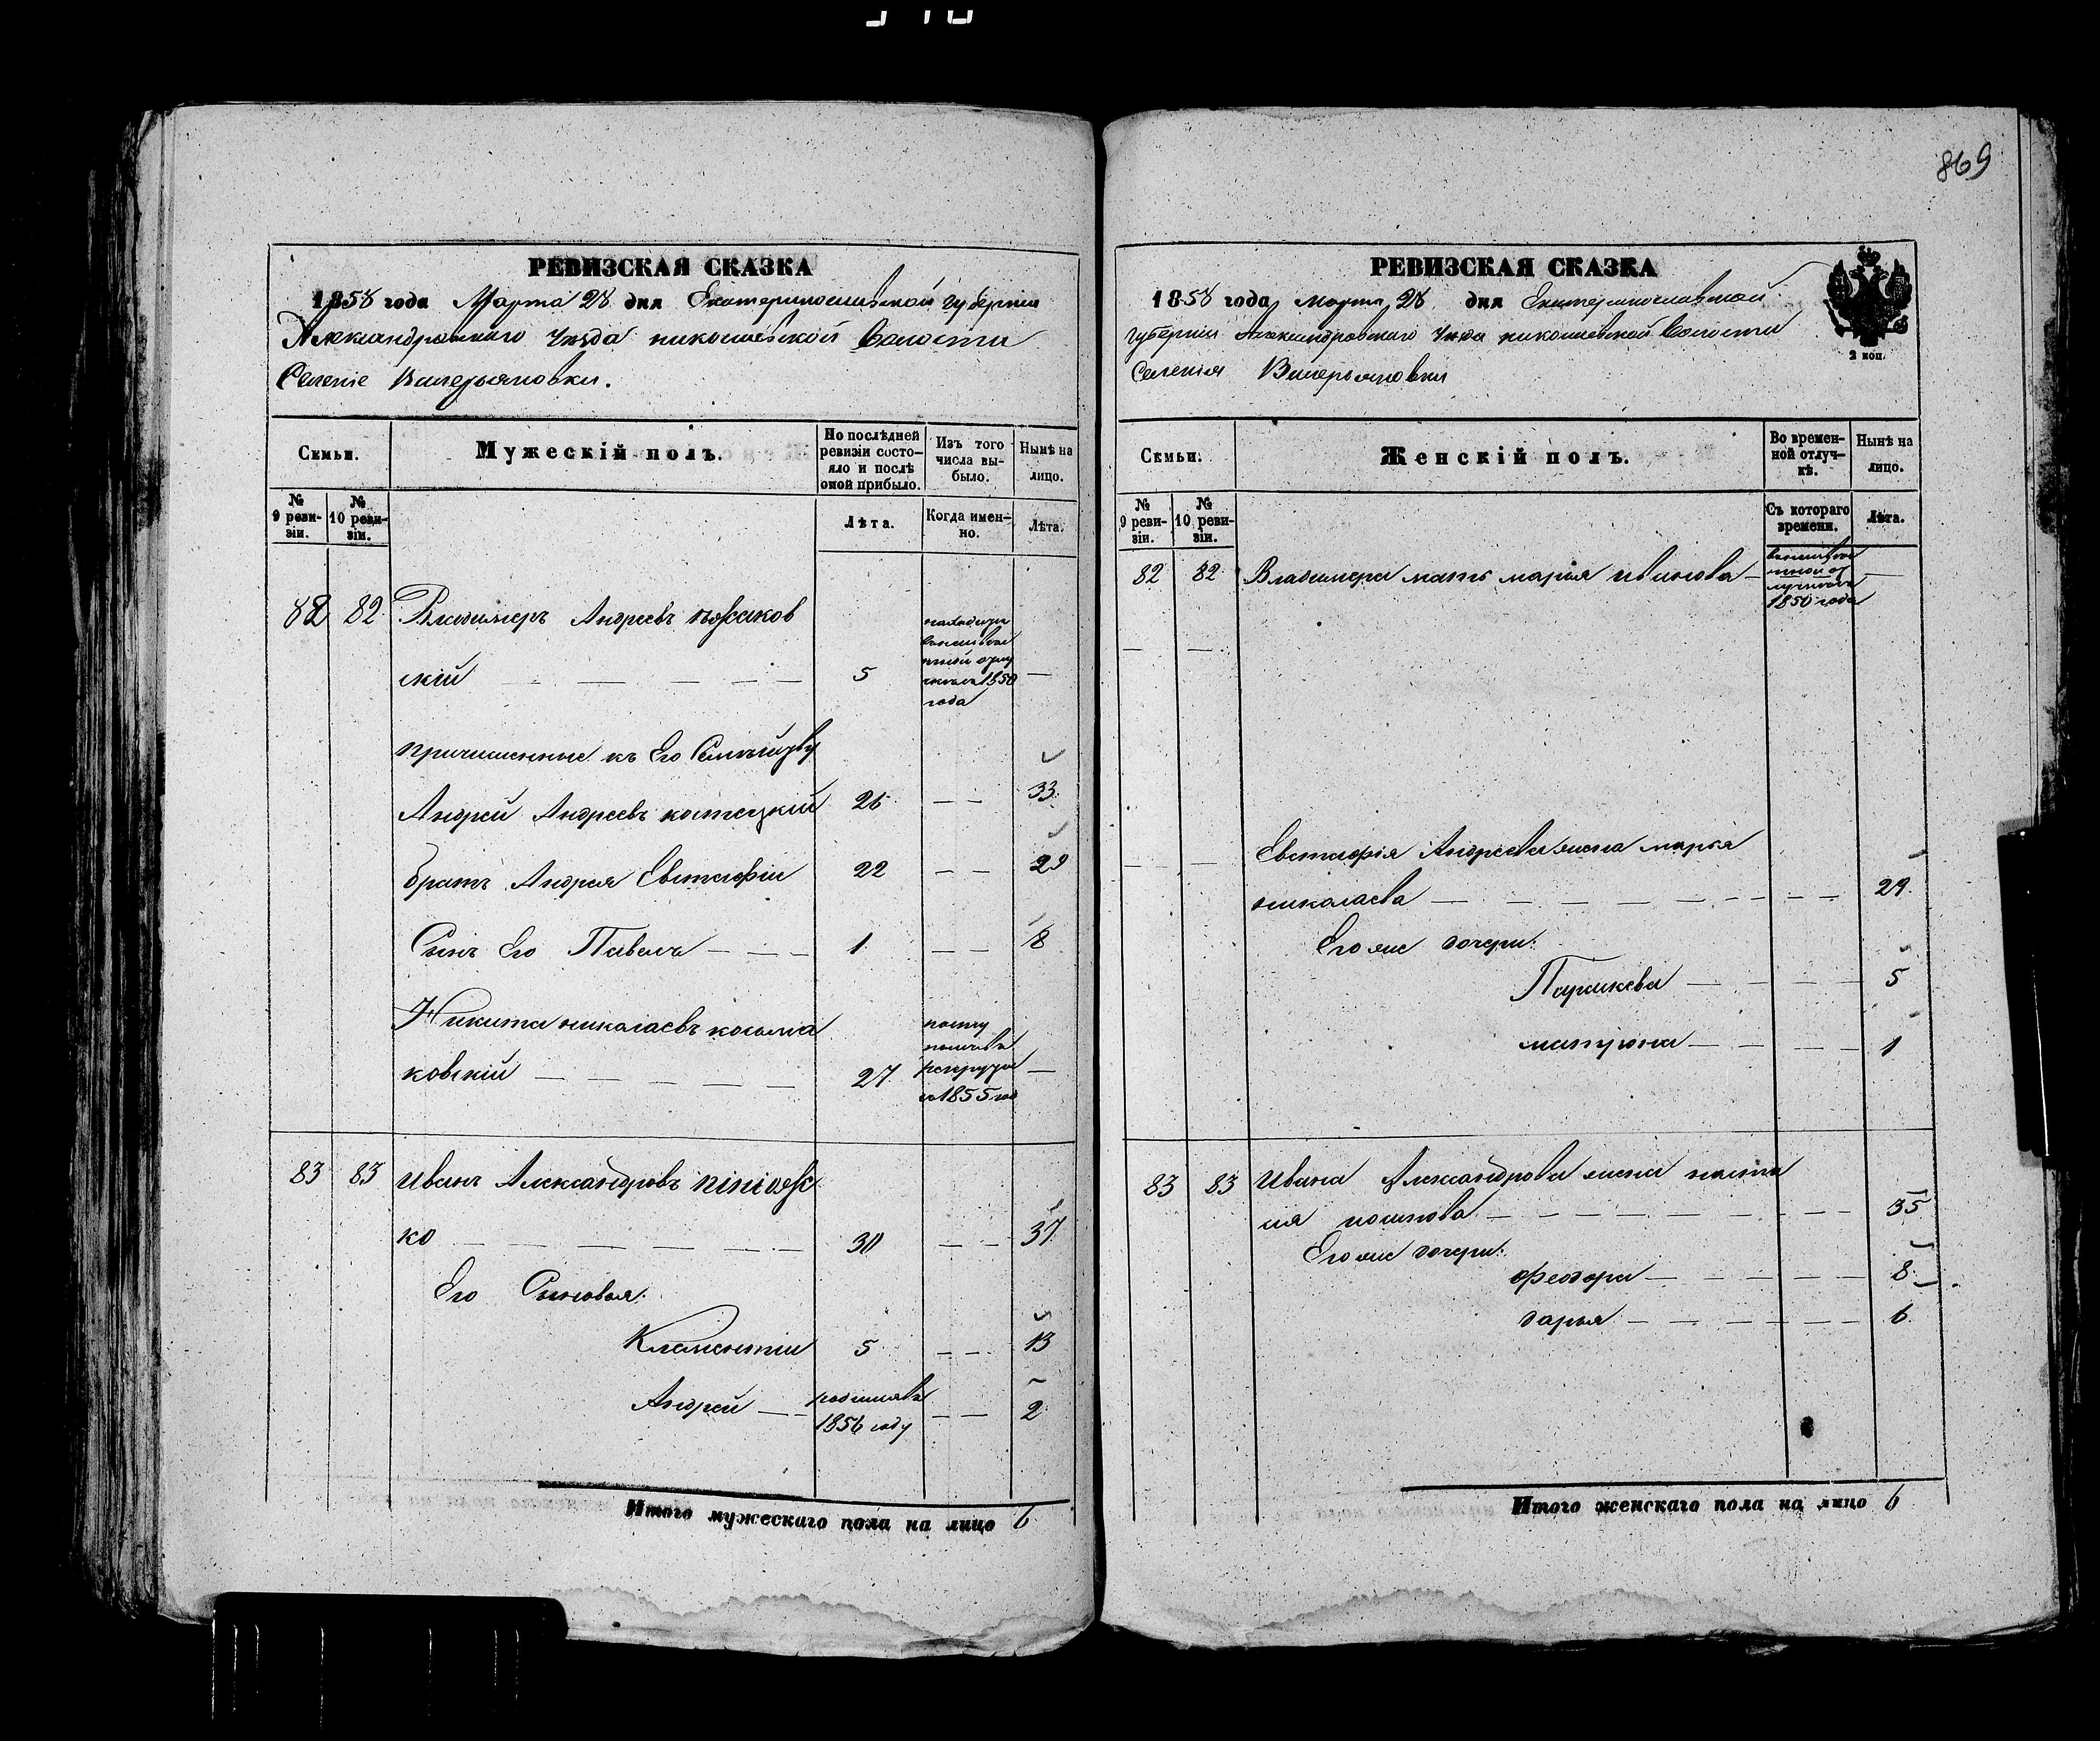 869
РЕВИЗСКАЯ СКАЗКА
1858 года Марта 28 дня Екатеринославской губернии
Александровскаго Уѣзда николаевской Волости
Селеніе Валерьяновки.
Семьи.
Мужескій полъ.
По послѣдней ревизіи состо-
яло и послѣ
оной прибыло.
Изъ того
числа вы-
было.
Нынѣ на
лицо.
№
9 реви-
зіи.
№
10 реви-
зіи.
Лѣта.
Когда имен-
но.
Лѣта.
82 82 Владимеръ Андреевъ
скій — — — — 5 —
1850
года
причисленные къ Его Семейству
Андрей Андреевъ костецкій 26 — — 33
братъ Андрея Евстафіи 22 — — 29
Сынъ Его Павелъ — — — 1 — — 8
Никита николаевъ
ковскій — — — — 27 —
поступилъ въ рекруты
въ 1855 год
83 83 Иванъ Александровъ
ко — — — — 30 — — 37
Его Сыновья:
Клементіи 5 — — 13
Андрей — — родился въ
1856 году — — 2
Итого мужескаго пола на лицо 6
РЕВИЗСКАЯ СКАЗКА
1858 года марта 28 дня Екатеринославской
губерніи Александровскаго Уѣзда николаевской Волости
Селенія Валерьяновки
2 коп.
Семьи.
Женскій полъ.
Во времен-
ной отлуч-
кѣ.
Нынѣ на
лицо.
№
9 реви-
зіи.
№
10 реви-
зіи.
Съ котораго
времени.
Лѣта.
82 82 Владимера мать марья иванова — —
1850 года
Евстафія Андреева жена марья
николаева — — — — — — 29
Его же дочери:
Параскева — — — — 5
матрона — — — — 1
83 83 Ивана Александрова жена ната
лія — — — — — — 35
Его же дочери:
феодора — — — — 8
дарья — — — — 6
Итого женскаго пола на лицо 6